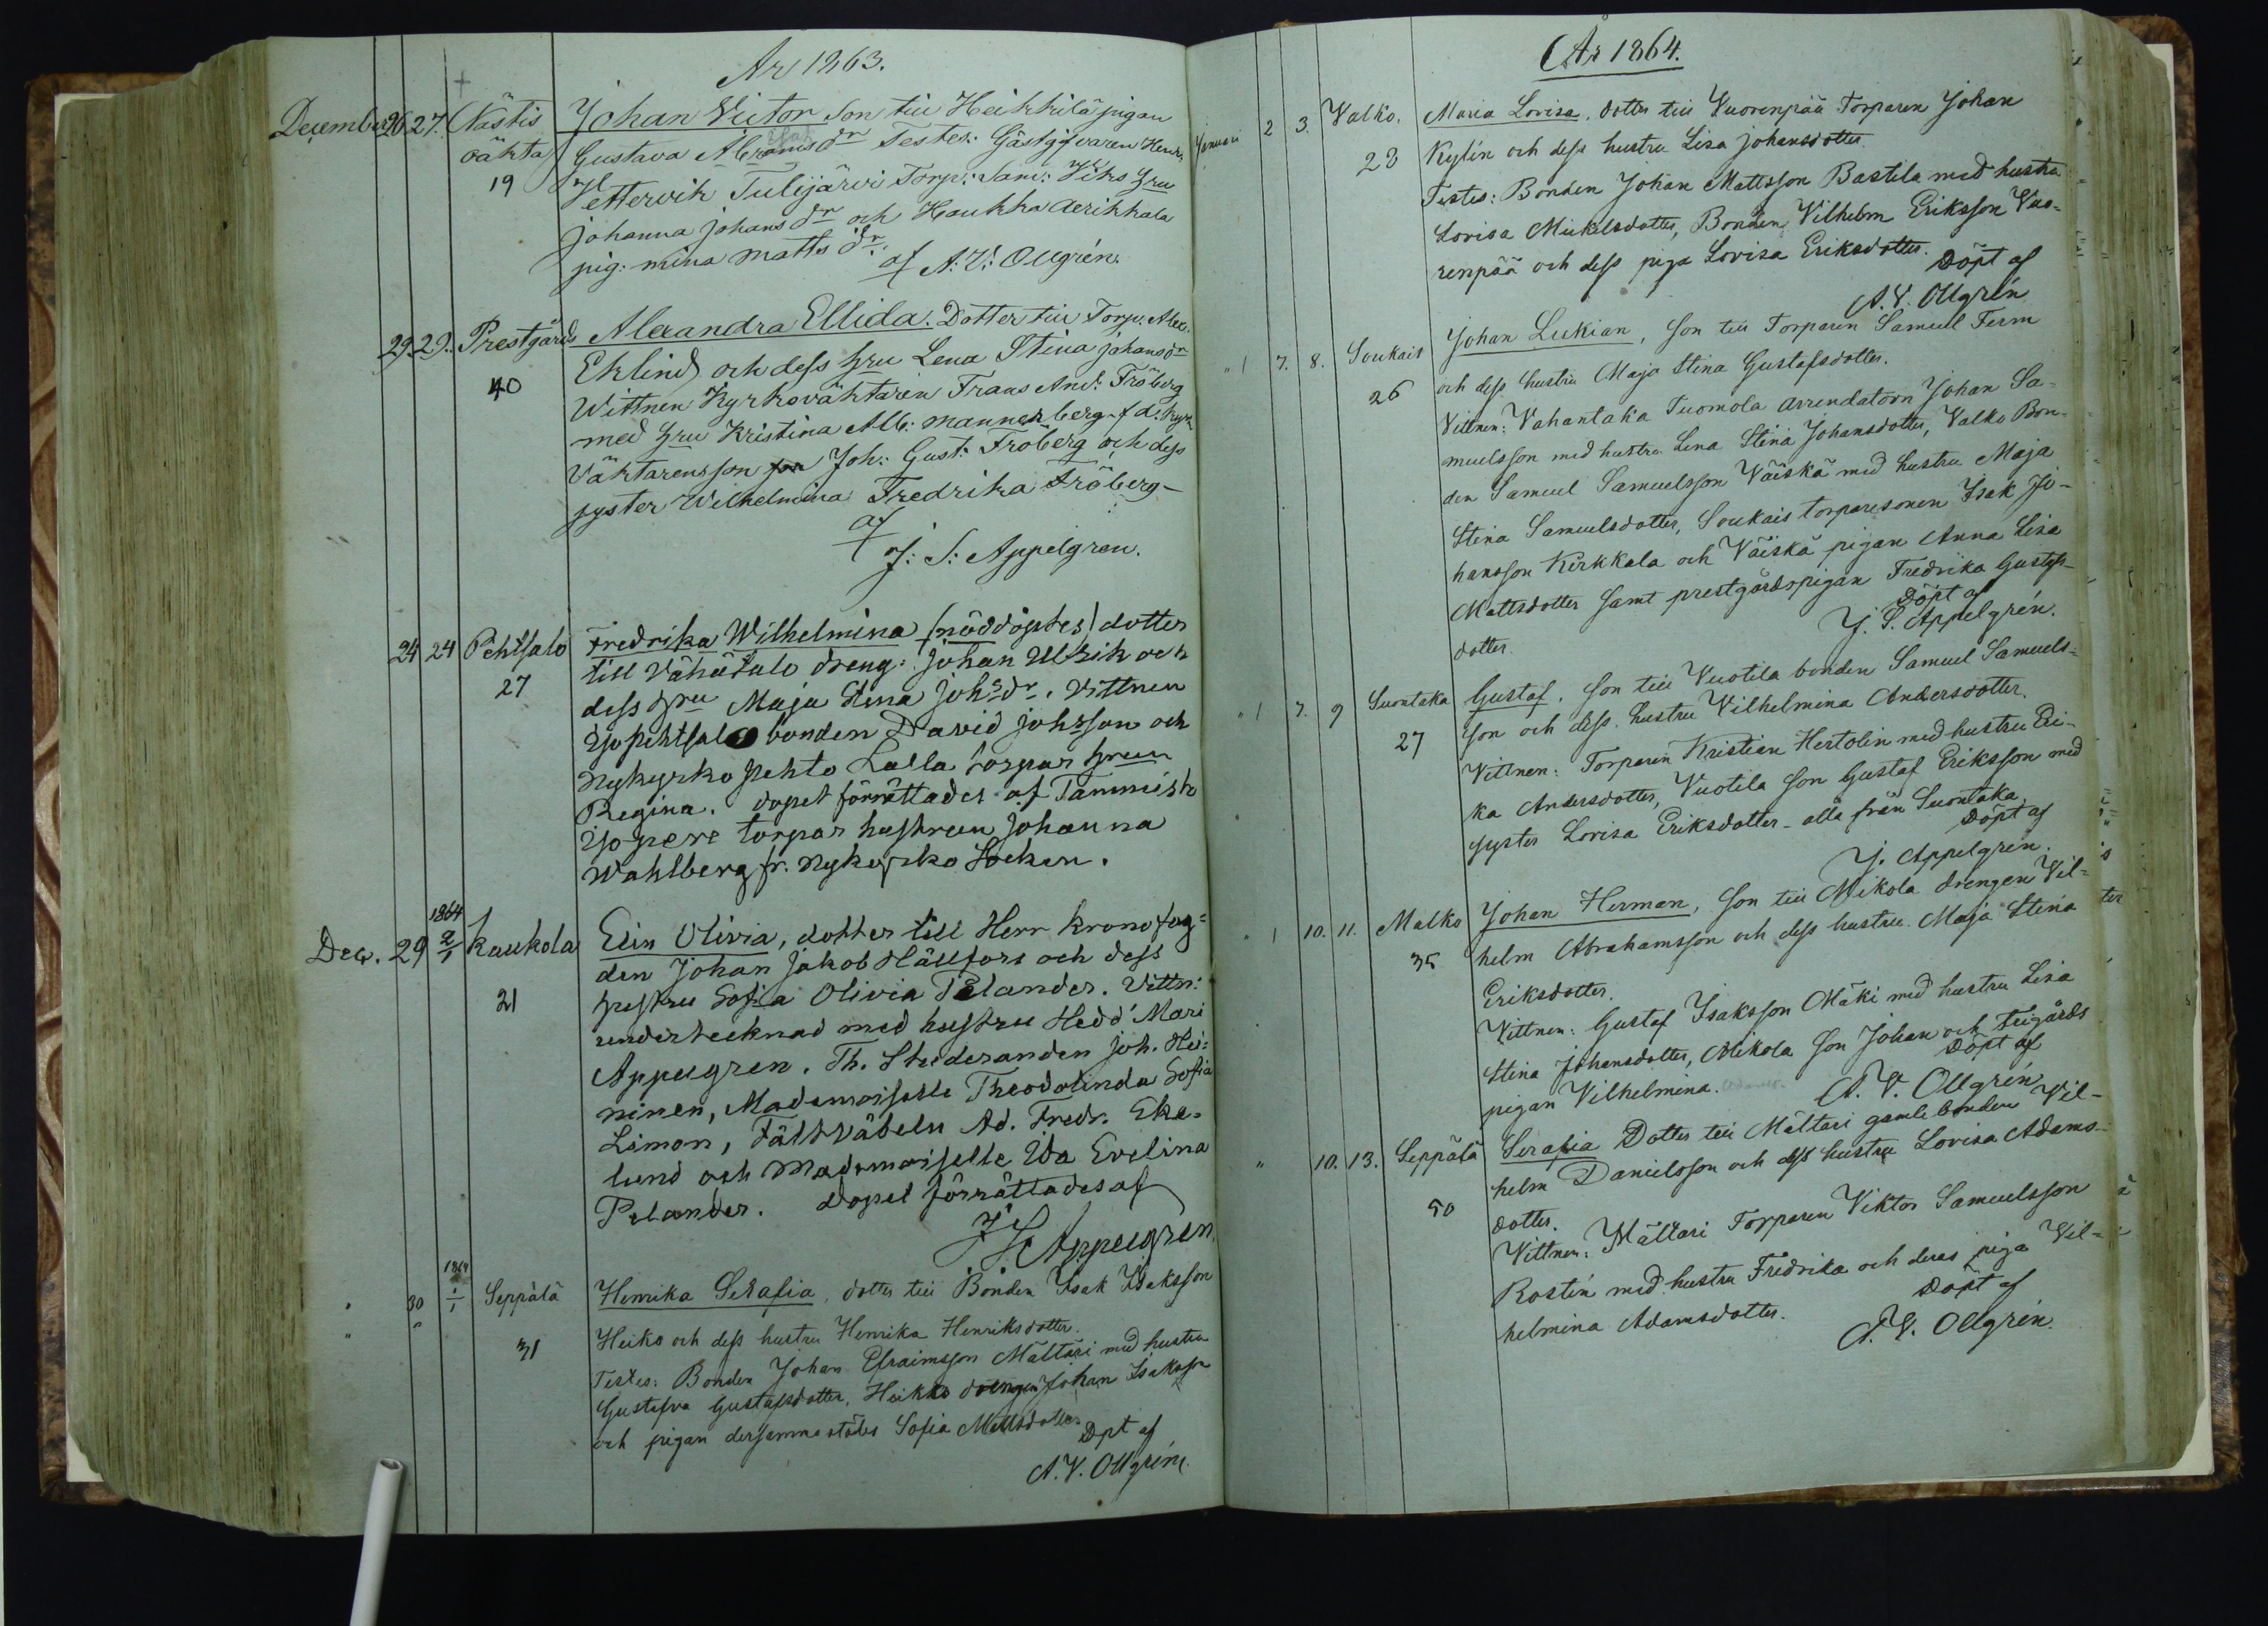 År 1863.
December 26 27. Nästis Johan Victor Son till Heikkilä pigan
vähta Gustava Abramsdr Testes: Gästgifvaren Henr.
19 Hettervik Tulijärvi Torp: Sam: Viks Hru
Johanna Johansdr och Haukka Aerikkala
pig: Mina Mattsdr.
af A: V: Ollgrén.
29. 29. Prestgårds Alexandra Ellida. Dotter till Torp. Alex.
Eklind och dess Hru Lena Stina Johansdr
40 Wittnen Kyrkoväktaren Frans And: Fröberg
med Hru Kristina Alb: Mannerberg f d. Kyrk
Väktarensson Joh: Gust: Fröberg och dess
syster Wilhelmina Fredrika Fröberg-
af
J: S: Appelgren.
24 24 Pehtsalo Fredrika Wilhelmina (nöddöptes) dotter
27 till Vähätalo dreng: Johan Ulrik och
dess Hru Maja Stina Johsdr. Vittnen
Yjopehtsalo bonden David Johsson och
Nykyrko Pehto Lalla torpar hrun
Regina. dopet förrättades af Tammisto
Yjopere torpar hustrun Johanna
Wahlberg fr. Nykyrko Socken.
1864
Dec. 29 2/1 Kaukola Elin Olivia, dotter till Herr Kronofog=
den Johan Jakob Hällfors och dess
21 hustru Sofia Olivia Pelander. Vittn:
undertecknad med hustru Hedd' Mari
Appelgren. Th. Studeranden Joh. Hei=
ninen, Mademoiselle Theodolinda Sofia
Limon, Fältväbeln Ad. Fredr. Eke=
lund och Mademoiselle Ida Evelina
Pelander. dopet förrättades af
J S Appelgren.
1864
" 30 1/1 Seppälä Henrika Serafia, dotter till Bonden Isak Isaksson
" " Heiko och dess hustru Henrika Henriksdotter.
31 Testes: Bonden Johan Efraimsson Mältäri med hustru
Gustafva Gustafsdotter, Heikko drengen Johan Isaksson
och pigan dersammastädes Sofia Mattsdotter.
Dpt af
A. V. Ollgrén.
År 1864.
Januari 2 3. Valko. Maria Lovisa, dotter till Vuorenpää Torparen Johan
28 Kylén och dess hustru Lisa Johansdotter.
Testes: Bonden Johan Mattsson Bastila med hustru
Lovisa Mickelsdotter, Bonden Vilhelm Eriksson Vuo-
renpää och dess piga Lovisa Eriksdotter.
Döpt af
A. V. Ollgrén
" 1 7. 8. Soukais Johan Lukian, son till Torparen Samuel Ferm
26 och dess hustru Maja Stina Gustafsdotter.
Vittnen: Vahantaka Tuomola arrendatorn Johan Sa-
muelsson med hustru Lena Stina Johansdotter, Valko Bon-
den Samuel Samuelsson Väiskä med hustru Maja
Stina Samuelsdotter, Soukais torparesonen Isak Jo-
hansson Kirkkala och Väiskä pigan Anna Lisa
Mattsdotter samt prestgårdspigan Fredrika Gustafs-
dotter. Döpt af
J. S. Appelgrén.
" 1 7. 9 Suontaka Gustaf, son till Vuotila bonden Samuel Samuels-
27 son och dess hustru Vilhelmina Andersdotter.
Vittnen: Torparen Kristian Hertolin med hustru Eri-
ka Andersdotter, Vuotila son Gustaf Eriksson med
syster Lovisa Eriksdotter - alla från Suontaka.
Döpt af
J. Appelgrén.
" 1 10. 11. Malko Johan Herman, son till Mikola drengen Vil-
35 helm Abrahamsson och dess hustru Maja Stina
Eriksdotter.
Vittnen: Gustaf Isaksson Mäki med hustru Lisa
Stina Johansdotter, Mikola son Johan och Teigårds
pigan Vilhelmina. Döpt af
A. V. Ollgrén
" 10. 13. Seppälä Serafia Dotter till Mältäri gamle bonden Vil-
50 helm Danielsson och dess hustru Lovisa Adams-
dotter.
Vittnen: Mältäri Torparen Viktor Samuelsson
Rostén med hustru Fredrika och deras piga Vil-
helmina Adamsdotter. Döpt af
A. V. Ollgrén.